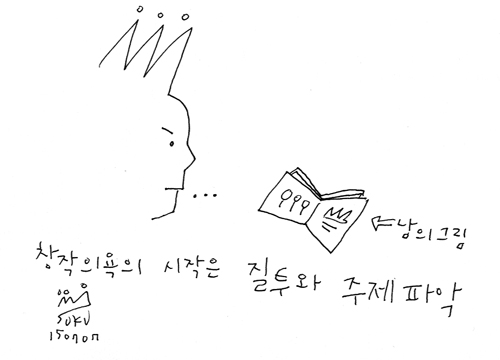 ...
남의그림
창작의욕의 시작은 질투와 주제파악
SUKU
150707